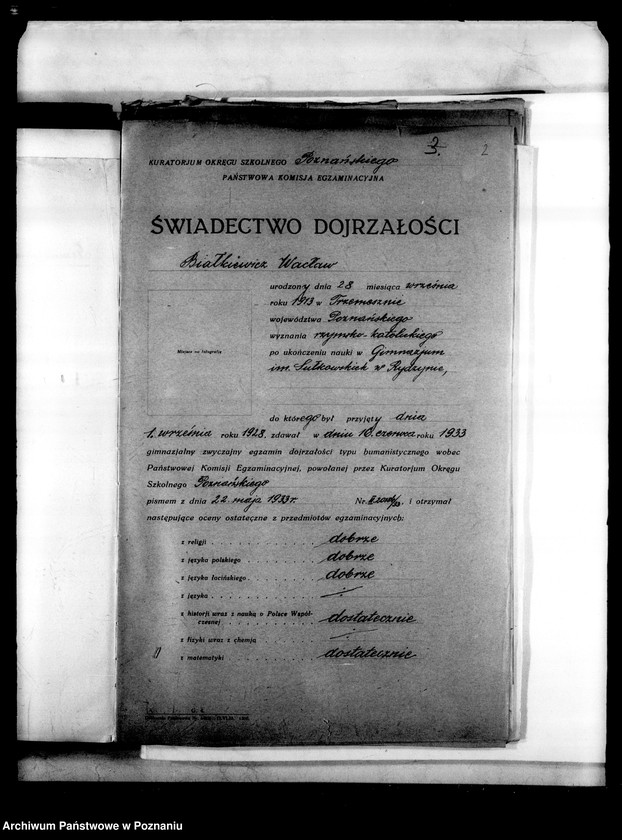 3. 2
KURATORJUM OKRĘGU SZKOLNEGO Poznańskiego
PAŃSTWOWA KOMISJA EGZAMINACYJNA
ŚWIADECTWO DOJRZAŁOŚCI
Białkiewicz Wacław
urodzony dnia 28 miesiąca września
roku 1913 w Trzemesznie
województwa Poznańskiego
wyznania rzymsko-katolickiego
Miejsce na fotografię
po ukończeniu nauki w Gimnazjum
im. Sułkowskich w Rydzynie,
do którego był przyjęty dnia
1. września roku 1928, zdawał w dniu 10. czerwca roku 1933
gimnazjalny zwyczajny egzamin dojrzałości typu humanistycznego wobec
Państwowej Komisji Egzaminacyjnej, powołanej przez Kuratorjum Okręgu
Szkolnego Poznańskiego
pismem z dnia 22. maja 1933 r. Nr. i otrzymał
następujące oceny ostateczne z przedmiotów egzaminacyjnych:
z religji . . . . . . . . . . . dobrze
z języka polskiego . . . . . . . dobrze
z języka łacińskiego . . . . . . dobrze
z języka . . . . . . . . . . . —
z historji wraz z nauką o Polsce Współ-
czesnej . . . . . . . . . dostatecznie
z fizyki wraz z chemją —
z matematyki . . . . . . . . . dostatecznie
Archiwum Państwowe w Poznaniu